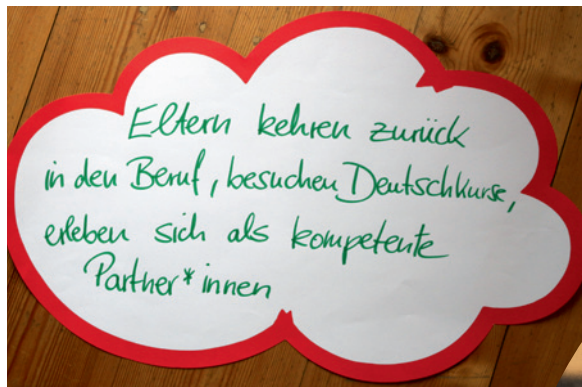 Eltern kehren zurück
in den Beruf, besuchen Deutschkurse,
erleben sich als kompetente
Partner*innen